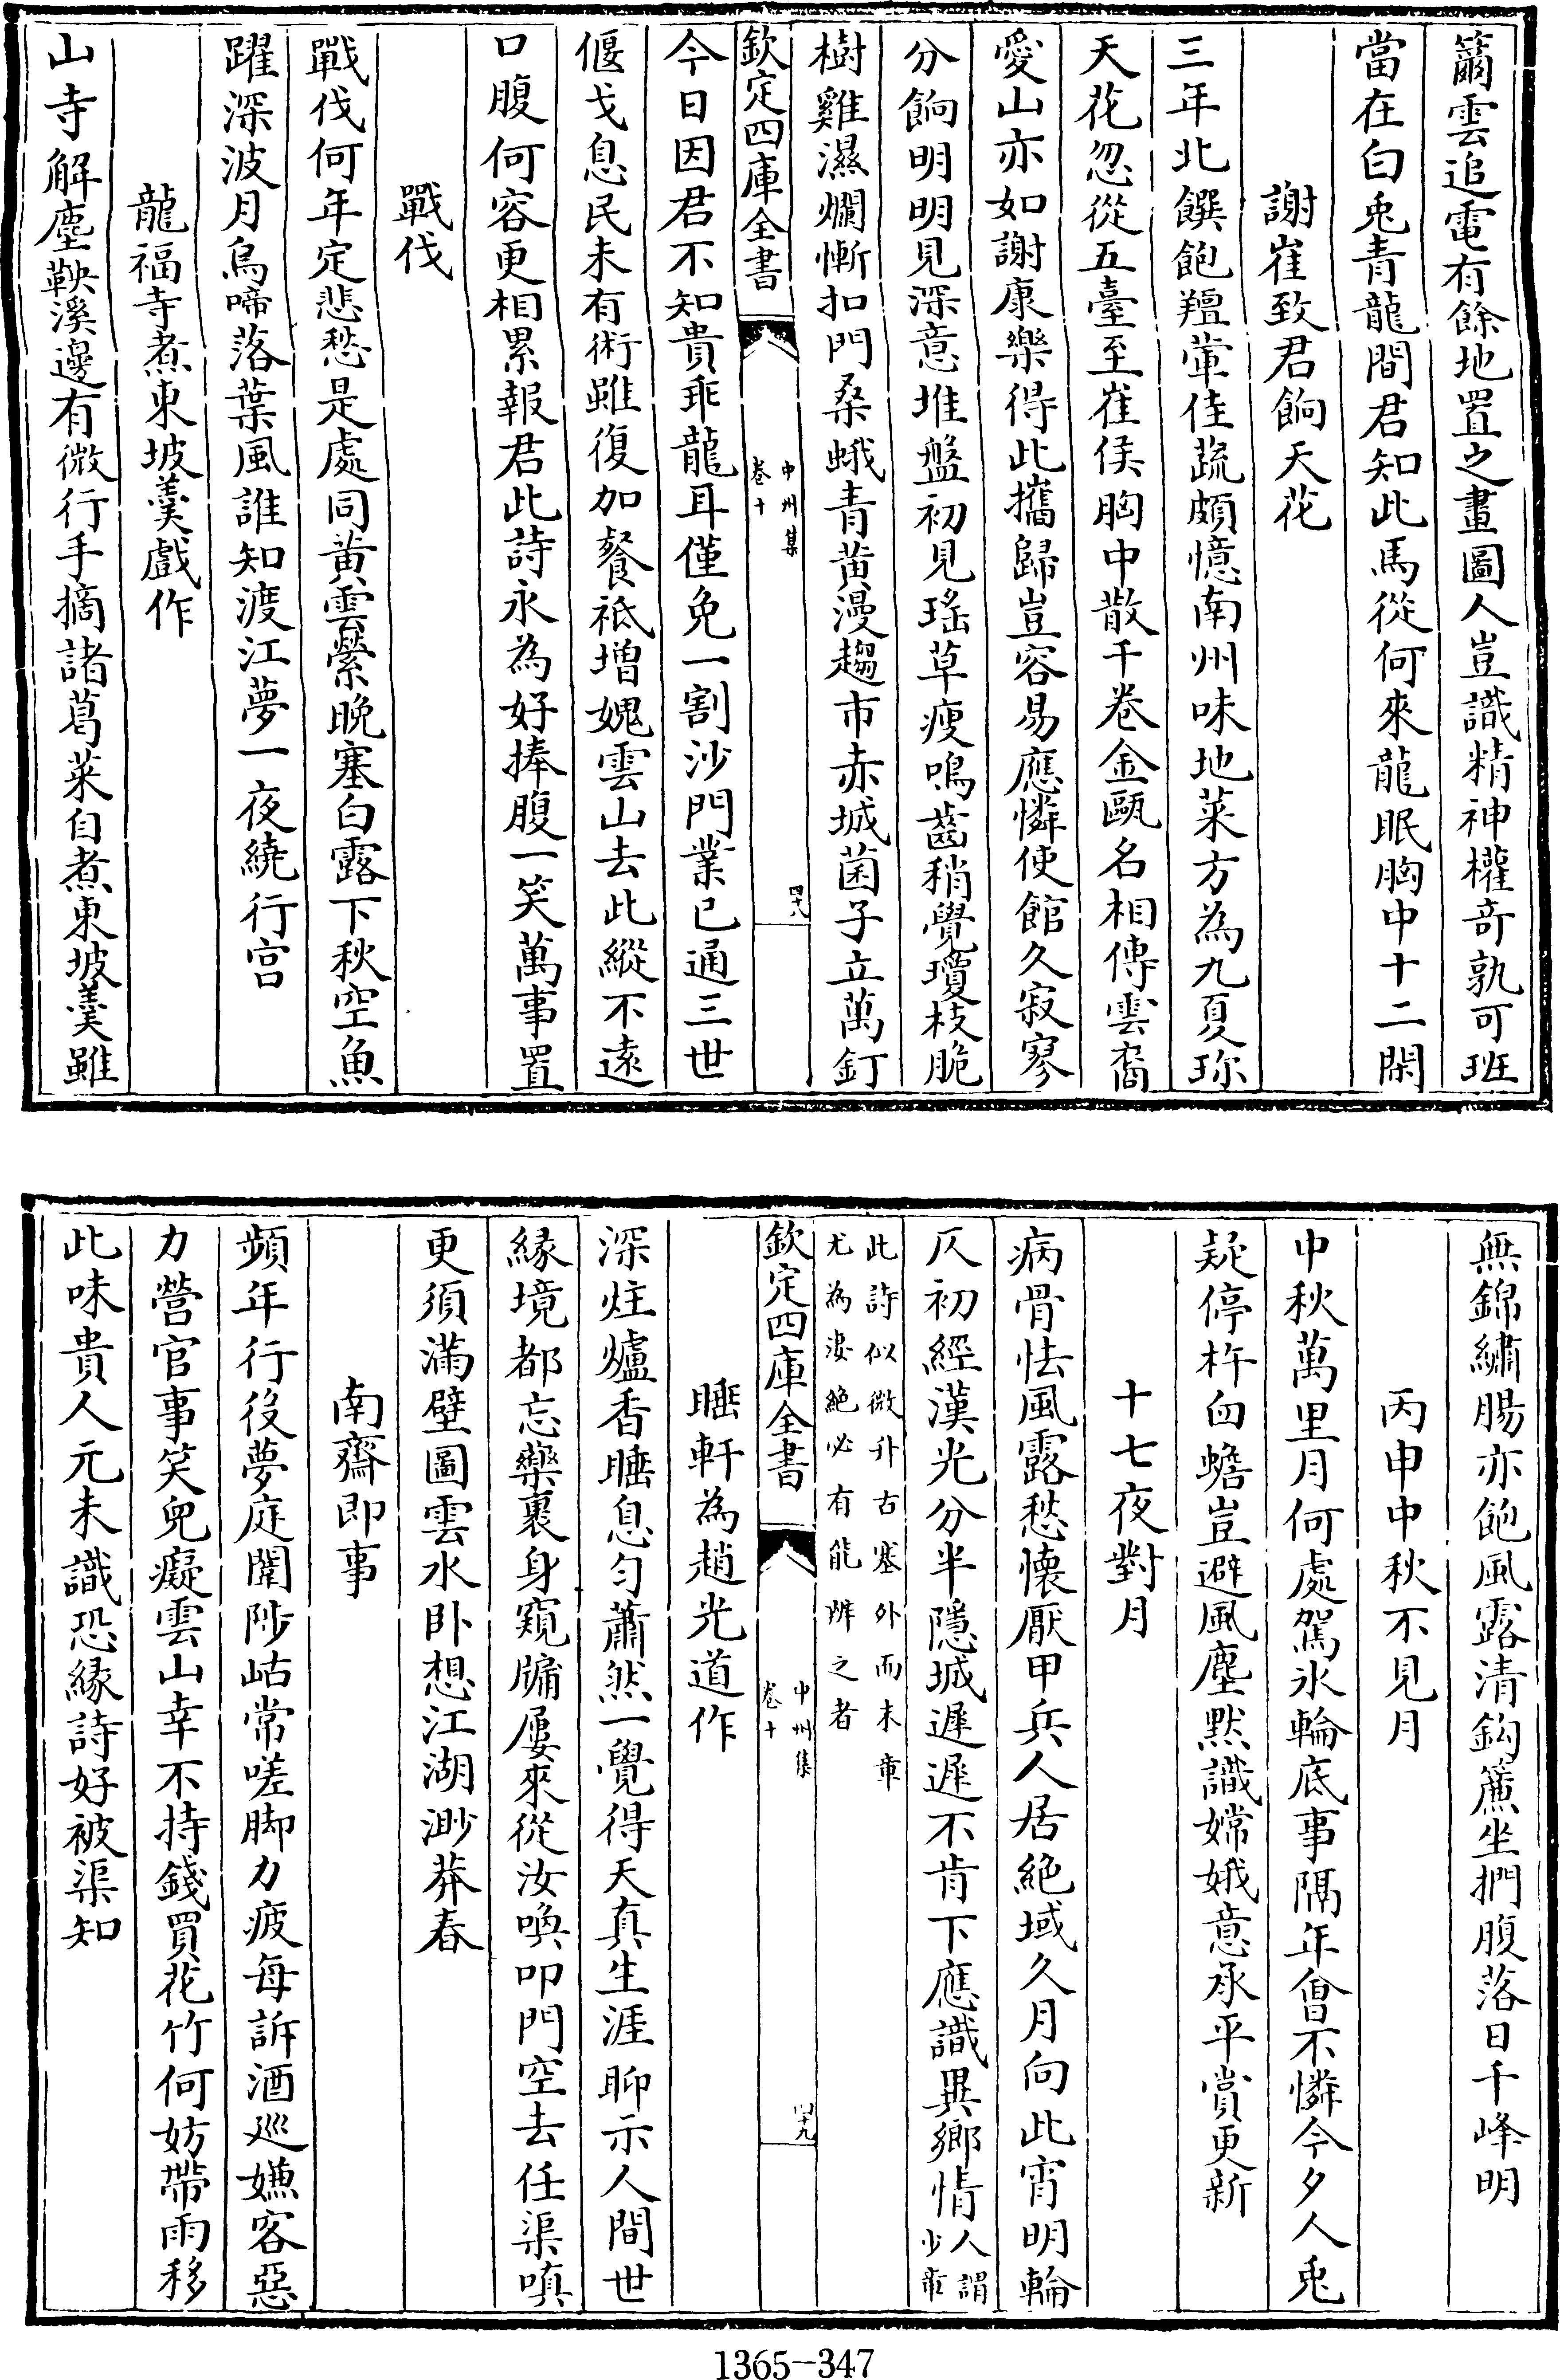 籋雲追電有餘地置之畫圖人豈識精神權奇孰可班
當在白兎青龍間君知此馬從何來龍眠胸中十二閑
謝崔致君餉天花
三年北饌飽羶葷佳蔬頗憶南州味地菜方為九夏珎
天花忽從五臺至崔侯胸中散千卷金甌名相傳雲裔
愛山亦如謝康樂得此攜歸豈容易應憐使館久寂寥
分餉明明見深意堆盤初見瑤草瘦鳴齒稍覺瓊枝脆
樹雞濕爛慚扣門桑蛾青黄漫趨市赤城菌子立萬釘
欽定四庫全書
中州集
卷十
四十八
今日因君不知貴乖龍耳僅免一割沙門業已通三世
偃戈息民未有術雖復加餐祗増媿雲山去此縱不遠
口腹何容更相累報君此詩永為好捧腹一笑萬事置
戰伐
戰伐何年定悲愁是處同黄雲縈晚塞白露下秋空魚
躍深波月鳥啼落葉風誰知渡江夢一夜繞行宫
龍福寺煮東坡羮戲作
山寺解塵鞅溪邊有微行手摘諸葛菜自煮東坡羮雖
無錦繡腸亦飽風露清鈎簾坐捫腹落日千峰明
丙申中秋不見月
中秋萬里月何處駕氷輪底事隔年㑹不憐今夕人兎
疑停杵臼蟾豈避風塵默識嫦娥意承平賞更新
十七夜對月
病骨怯風露愁懷厭甲兵人居絶域久月向此宵明輪
仄初經漢光分半隱城遲遲不肯下應識異鄉情人謂
少帝
此詩似微升古塞外而末章
尤為淒絶必有能辨之者
欽定四庫全書
中州集
卷十
四十九
睡軒為趙光道作
深炷爐香睡息匀蕭然一覺得天真生涯聊示人間世
緣境都忘藥裹身窺牖屢來從汝喚叩門空去任渠嗔
更須滿壁圖雲水卧想江湖渺莽春
南齋即事
頻年行役夢庭闈陟岵常嗟脚力疲每訴酒巡嫌客惡
力營官事笑兒癡雲山幸不持錢買花竹何妨帶雨移
此味貴人元未識恐緣詩好被渠知
1365-347